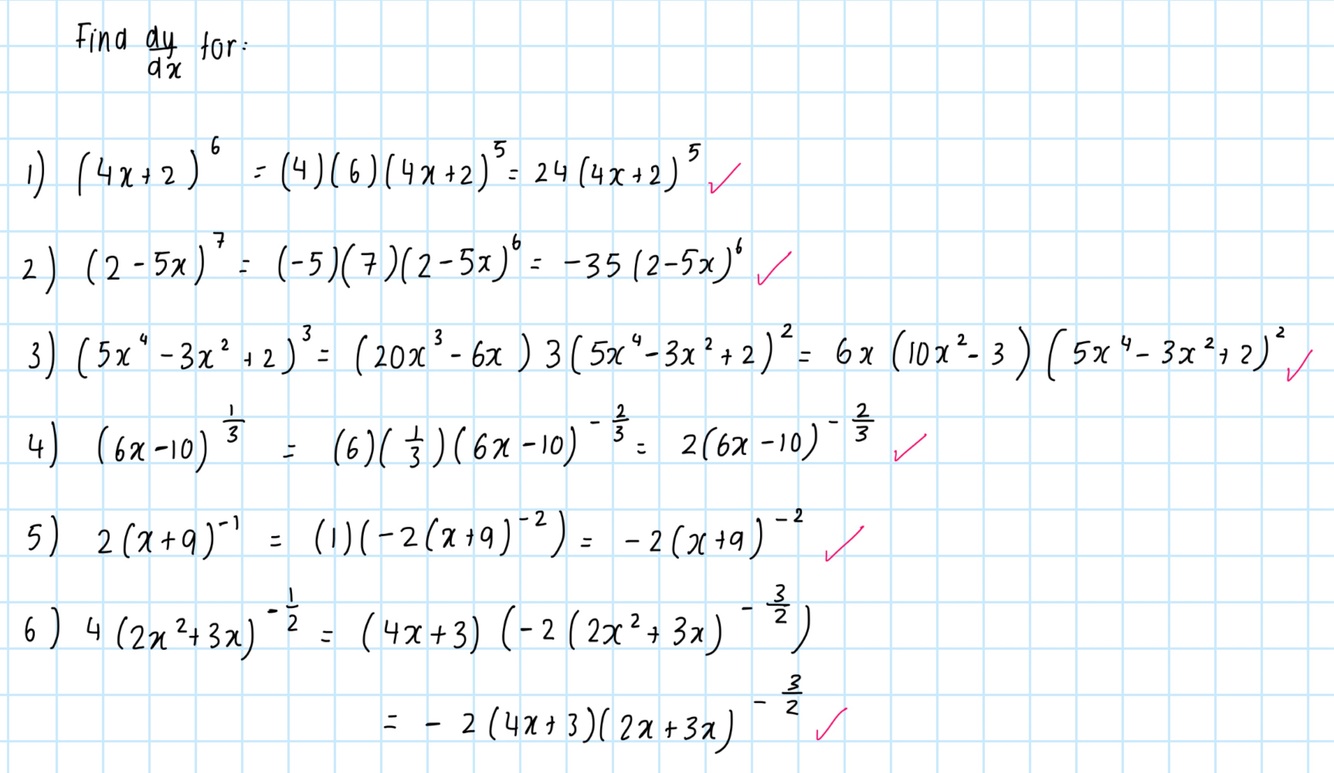 Find dy/dx for:
1) (4x+2)^6 = (4)(6)(4x+2)^5 = 24(4x+2)^5 ✓
2) (2-5x)^7 = (-5)(7)(2-5x)^6 = -35(2-5x)^6 ✓
3) (5x^4-3x^2+2)^3 = (20x^3-6x)3(5x^4-3x^2+2)^2 = 6x(10x^2-3)(5x^4-3x^2+2)^2 ✓
4) (6x-10)^(1/3) = (6)(1/3)(6x-10)^(-2/3) = 2(6x-10)^(-2/3) ✓
5) 2(x+9)^-1 = (1)(-2(x+9)^-2) = -2(x+9)^-2 ✓
6) 4(2x^2+3x)^(-1/2) = (4x+3)(-2(2x^2+3x)^(-3/2))
= -2(4x+3)(2x+3x)^(-3/2) ✓